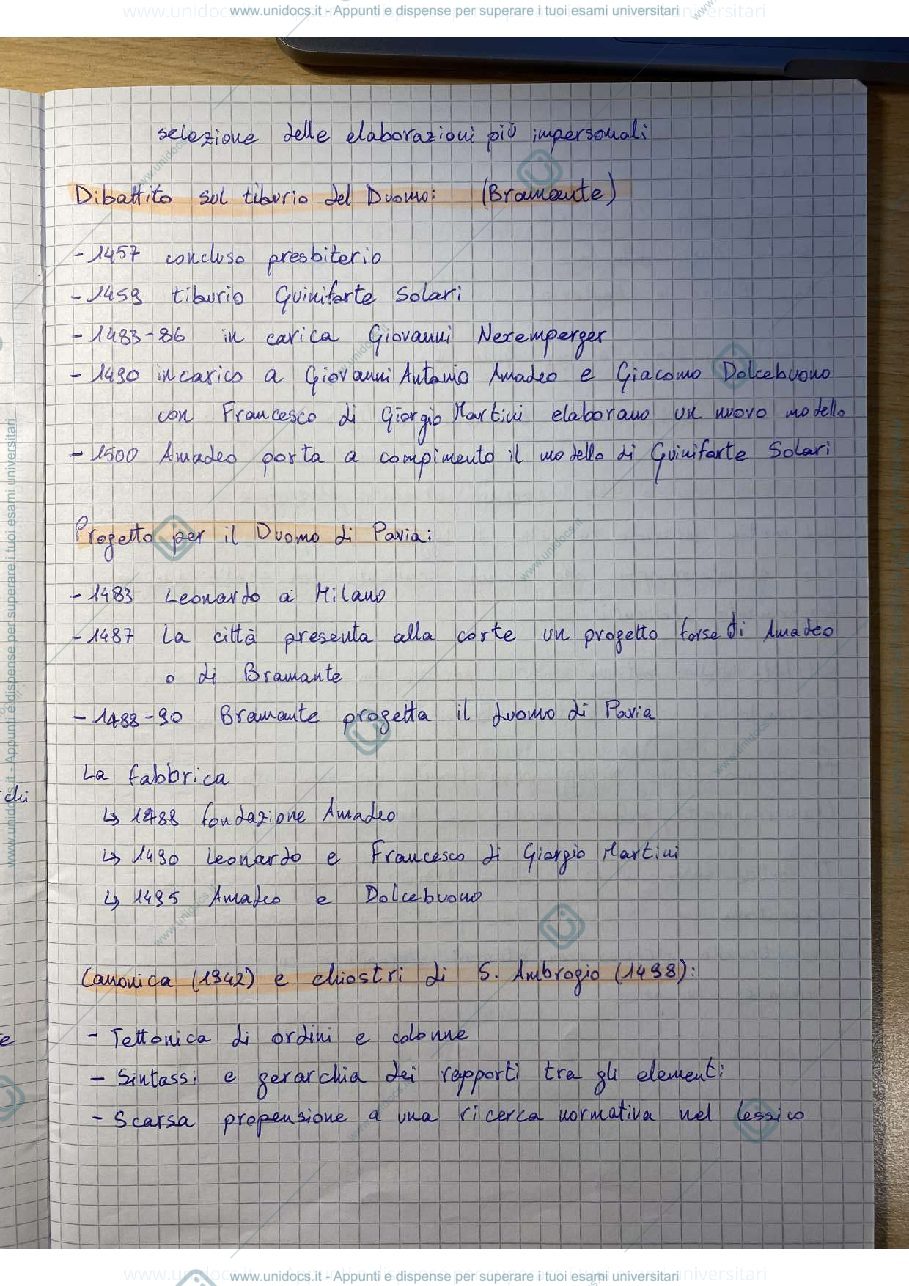 www.unidocs.it - Appunti e dispense per superare i tuoi esami universitari
selezione delle elaborazioni più impersonali
Dibattito sul tiburio del Duomo: (Bramante)
- 1457 concluso presbiterio
- 1459 tiburio Guiniforte Solari
- 1483-86 in carica Giovanni Nexemperger
- 1490 incarico a Giovanni Antonio Amadeo e Giacomo Dolcebuono
con Francesco di Giorgio Martini elaborano un nuovo modello
- 1500 Amadeo porta a compimento il modello di Guiniforte Solari
Progetto per il Duomo di Pavia:
- 1483 Leonardo a Milano
- 1487 La città presenta alla corte un progetto forse di Amadeo
o di Bramante
- 1488-90 Bramante progetta il duomo di Pavia
La fabbrica
↳ 1488 fondazione Amadeo
↳ 1490 Leonardo e Francesco di Giorgio Martini
↳ 1495 Amadeo e Dolcebuono
Canonica (1942) e chiostri di S. Ambrogio (1498):
- Tettonica di ordini e colonne
- Sintassi e gerarchia dei rapporti tra gli elementi
- Scarsa propensione a una ricerca normativa nel lessico
www.unidocs.it - Appunti e dispense per superare i tuoi esami universitari